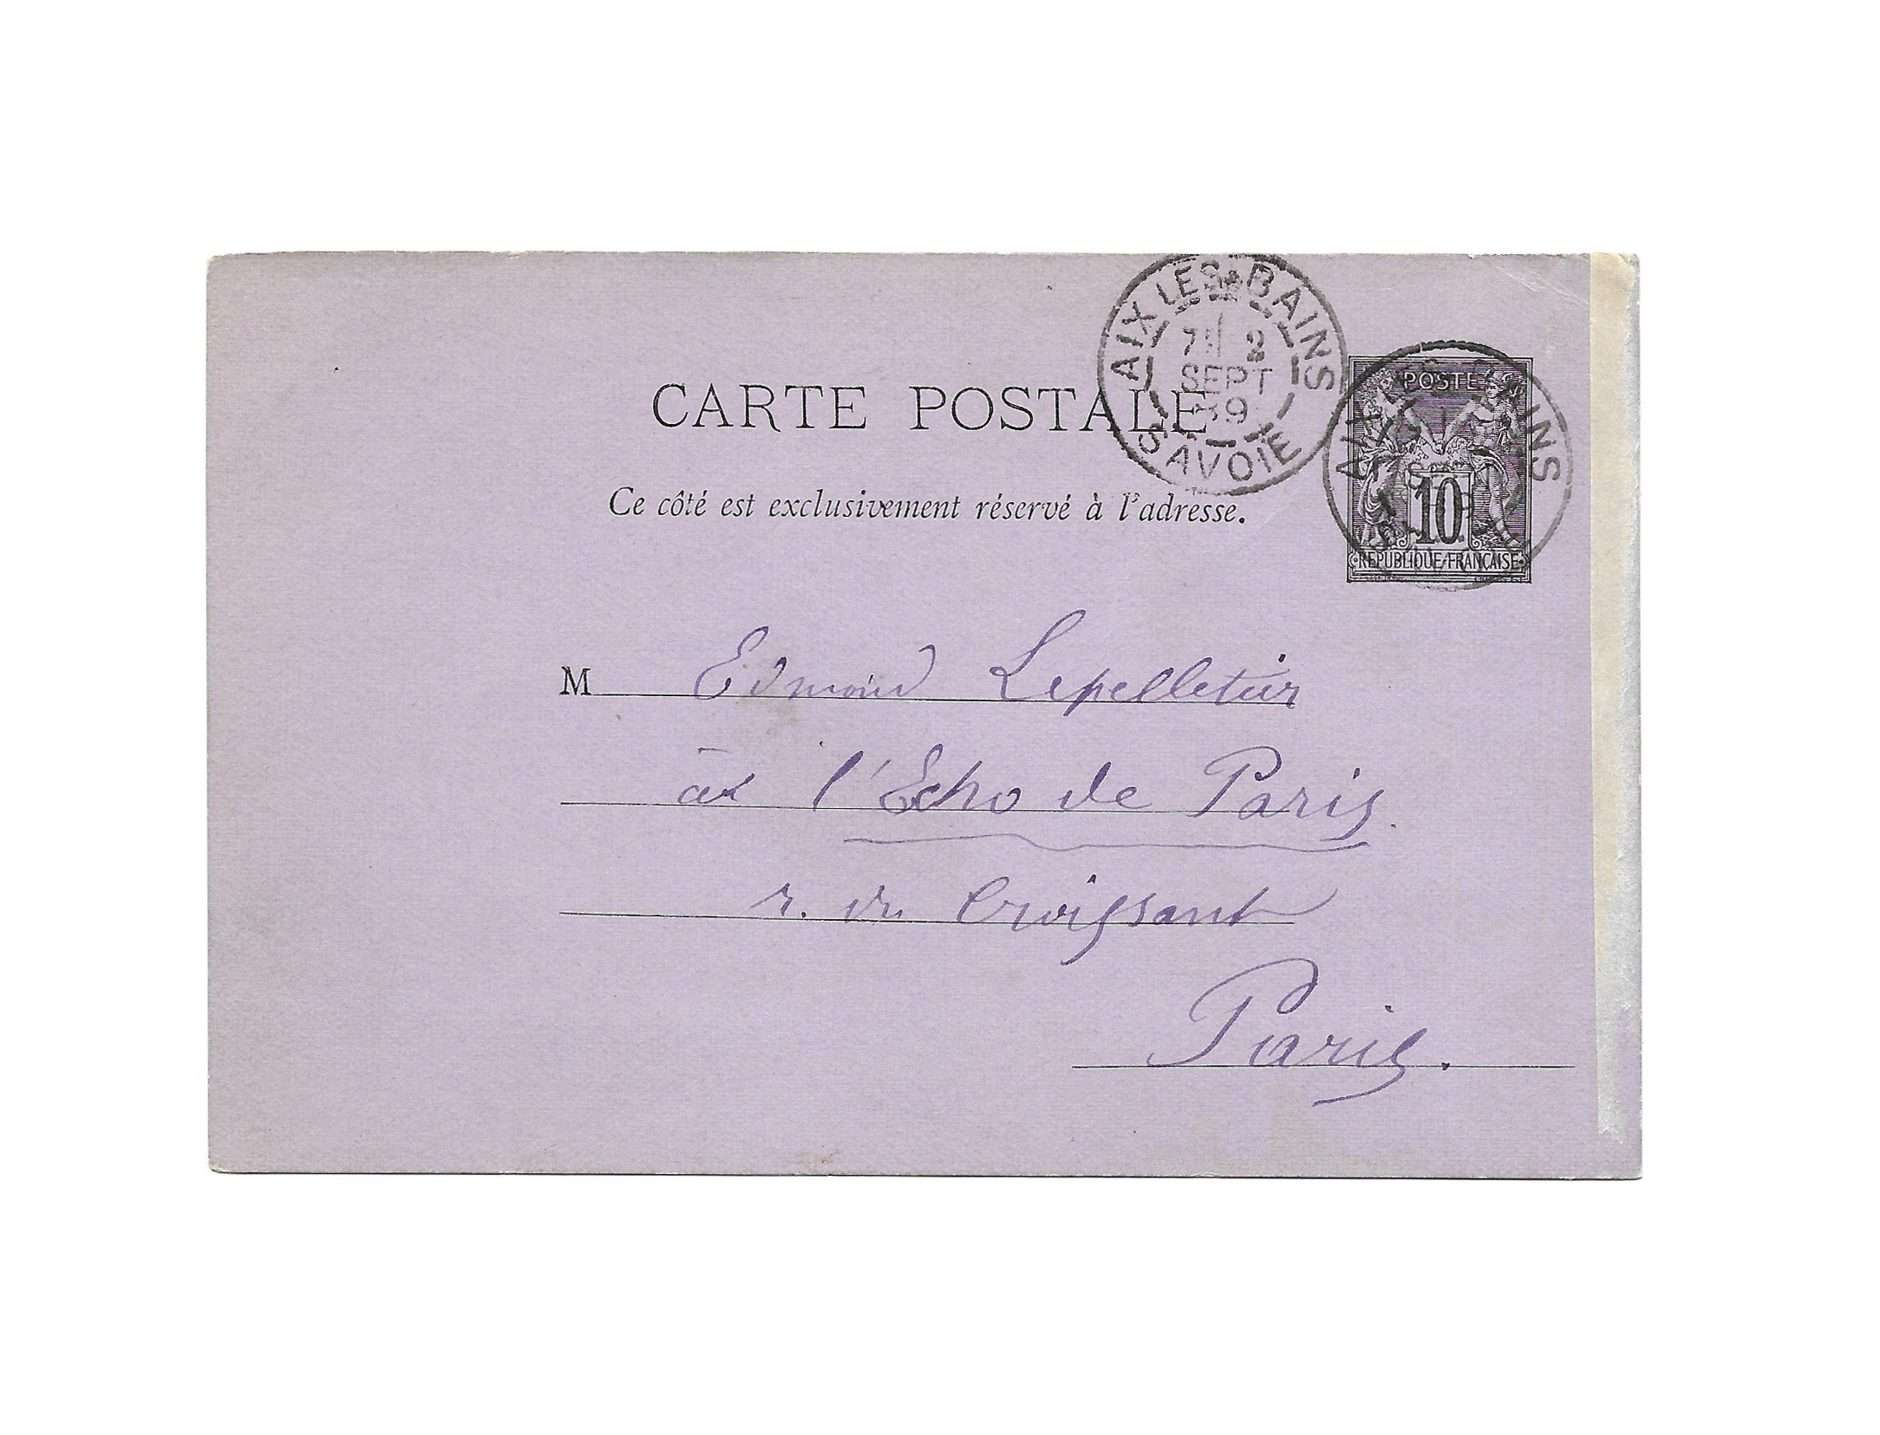 AIX LES BAINS
7E 2
SEPT
89
SAVOIE
CARTE POSTALE
POSTE
10
REPUBLIQUE FRANÇAISE
Ce côté est exclusivement réservé à l'adresse.
M Edmond Lepelletier
à l'Echo de Paris
r. du Croissant
Paris.